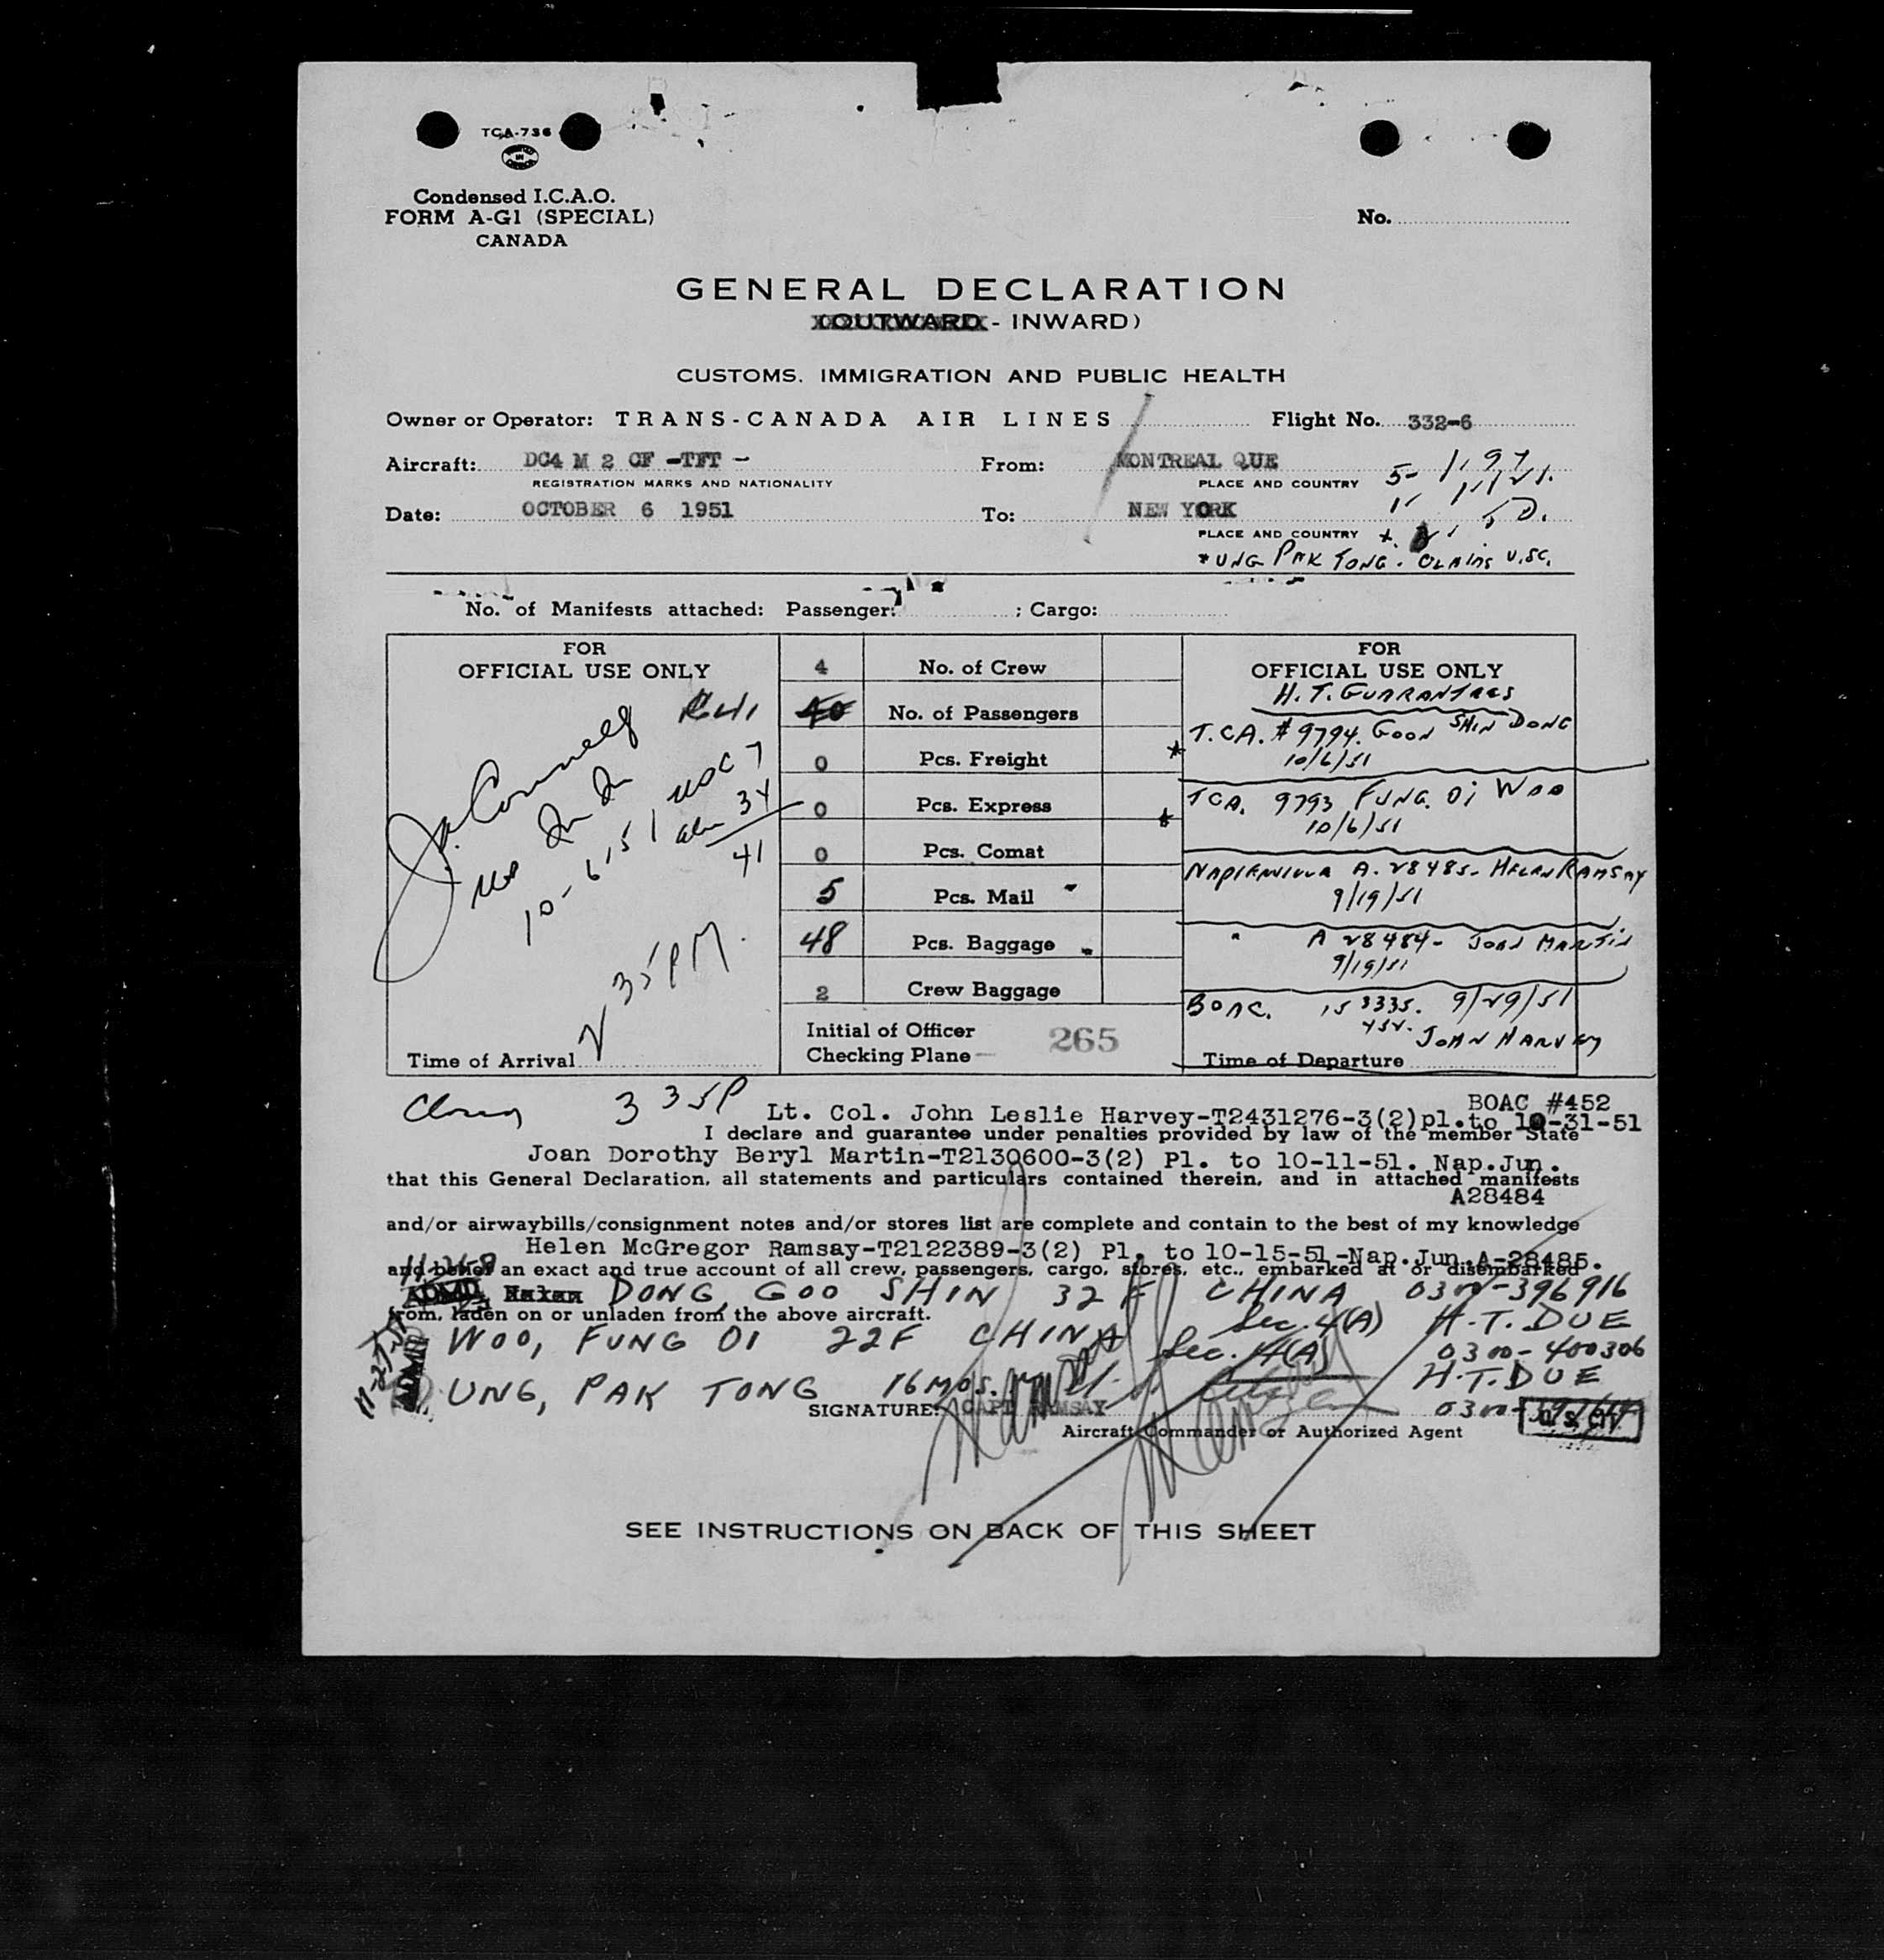 TCA-736
Condensed I.C.A.O.
FORM A-G1 (SPECIAL)
CANADA
No.
GENERAL DECLARATION
(OUTWARD - INWARD)
CUSTOMS, IMMIGRATION AND PUBLIC HEALTH
Owner or Operator: TRANS-CANADA AIR LINES Flight No. 332-6
Aircraft: DC4 M 2 CF -TFT - From: MONTREAL QUE
REGISTRATION MARKS AND NATIONALITY PLACE AND COUNTRY
Date: OCTOBER 6 1951 To: NEW YORK
PLACE AND COUNTRY
* UNG PAK TONG. CLAIMS U.S.C.
No. of Manifests attached: Passenger: ; Cargo:
FOR
OFFICIAL USE ONLY
USC 7
34
41
10-6-51
2 35 PM.
Time of Arrival
4 No. of Crew
40 No. of Passengers
0 Pcs. Freight
0 Pcs. Express
0 Pcs. Comat
5 Pcs. Mail
48 Pcs. Baggage
2 Crew Baggage
Initial of Officer
Checking Plane 265
FOR
OFFICIAL USE ONLY
H.T. GUARANTEES
T.C.A. # 9794. GOON SHIN DONG
10/6/51
TCA. 9793 FUNG OI WOO
10/6/51
A. 28485- HELEN RAMSAY
9/19/51
" A 28484- JOAN MARTIN
9/19/51
BOAC. 9/29/51
452. JOHN HARVEY
Time of Departure
3 35P
BOAC #452
Lt. Col. John Leslie Harvey-T2431276-3(2)pl.to 10-31-51
I declare and guarantee under penalties provided by law of the member State
Joan Dorothy Beryl Martin-T2130600-3(2) Pl. to 10-11-51. Nap.Jun.
that this General Declaration, all statements and particulars contained therein, and in attached manifests
A28484
and/or airwaybills/consignment notes and/or stores list are complete and contain to the best of my knowledge
Helen McGregor Ramsay-T2122389-3(2) Pl. to 10-15-51-Nap.Jun.A-28485.
and belief an exact and true account of all crew, passengers, cargo, stores, etc., embarked at or disembarked
ADMD Helen DONG, GOO SHIN 32 F CHINA 0300-396916
from, laden on or unladen from the above aircraft.
Sec. 4(A) H.T. DUE
WOO, FUNG OI 22F CHINA Sec. 4(A) 0300-400306
H.T. DUE
ADMD UNG, PAK TONG 16 MOS.
SIGNATURE: CAPT RAMSAY
Aircraft Commander or Authorized Agent
SEE INSTRUCTIONS ON BACK OF THIS SHEET